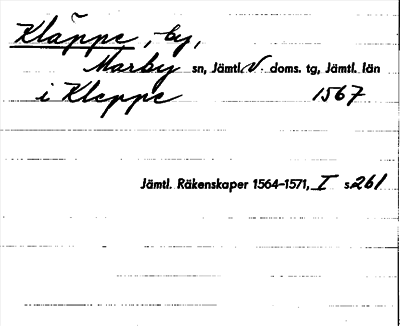 Kläppe, by,
Marby sn, Jämtl. V. doms. tg, Jämtl. län
i Kleppe 1567
Jämtl. Räkenskaper 1564-1571, I s 261